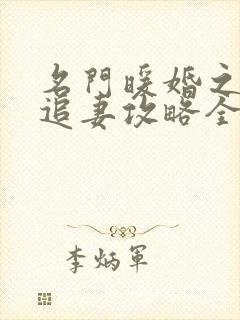 名門暖婚之
追妻攻略全
李炳軍